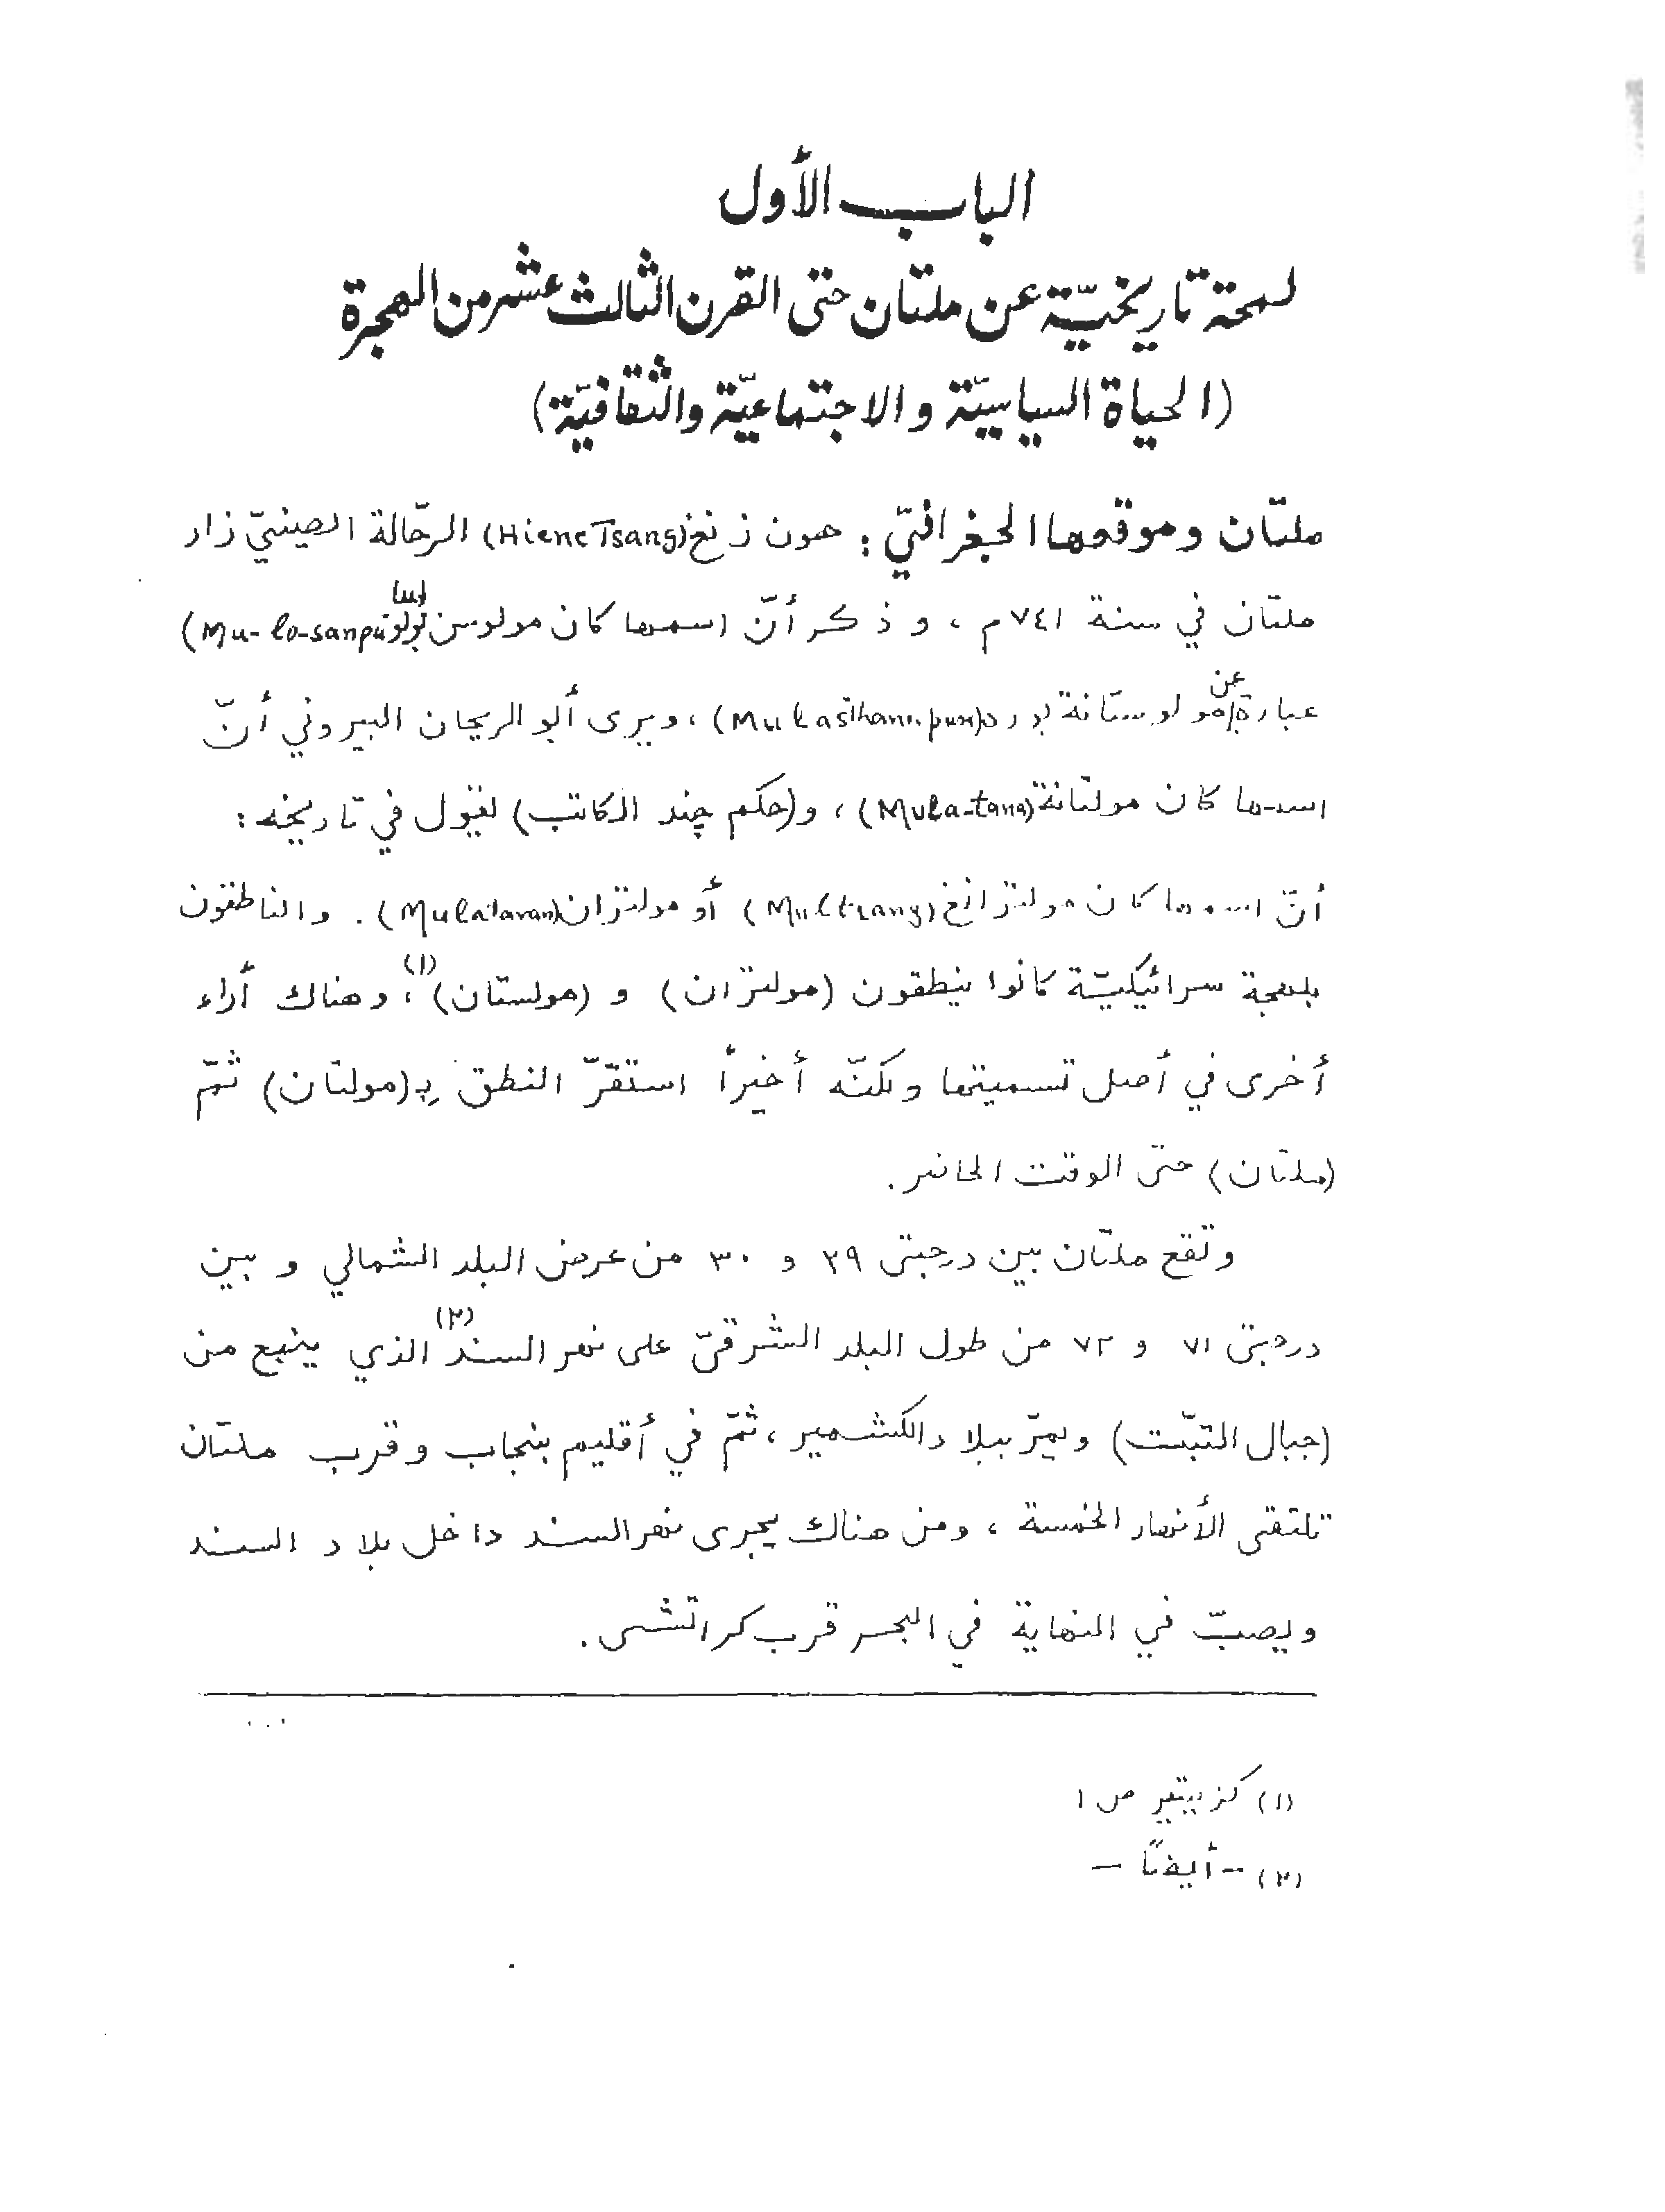 الباب الأول
لمحة تاريخيّة عن ملتان حتى القرن الثالث عشر من الهجرة
(الحياة السياسيّة والاجتماعيّة والثقافيّة)
ملتان وموقعها الجغرافيّ : هون زنغ (Hiene Tsang) الرحّالة الصينيّ زار
ملتان في سنة ٧٤١م ، وذكر أنّ اسمها كان مولوسن بولو (Mu-lo-sanpu)
عبارة عن مولوستانة (Mulasthanapura) ، ويرى أبو الريحان البيروني أنّ
اسمها كان مولتانة (Mula-tana) ، و(حكم چند الكاتب) يقول في تاريخه :
أنّ اسمها كان مولترانغ (Multrang) أو مولتران (Mulataran) . والناطقون
بلهجة سرائيكيّة كانوا ينطقون (مولتران) و (مولستان) (١) ، وهناك أراء
أخرى في أصل تسميتها ولكنّه أخيراً استقرّ النطق بـ(مولتان) ثمّ
(ملتان) حتّى الوقت الحاضر .
وتقع ملتان بين درجتى ٢٩ و ٣٠ من عرض البلد الشمالي و بين
درجتى ٧١ و ٧٢ من طول البلد الشرقيّ على نهر السند (٢) الذي ينبع من
(جبال التبّت) ويمرّ ببلاد الكشمير ، ثمّ في أقليم بنجاب وقرب ملتان
تلتقى الأنهار الخمسة ، ومن هناك يجرى نهر السند داخل بلاد السند
ويصبّ في النهاية في البحر قرب كراتشى .
(١) كزييتير ص ١
(٢) - أيضًا -